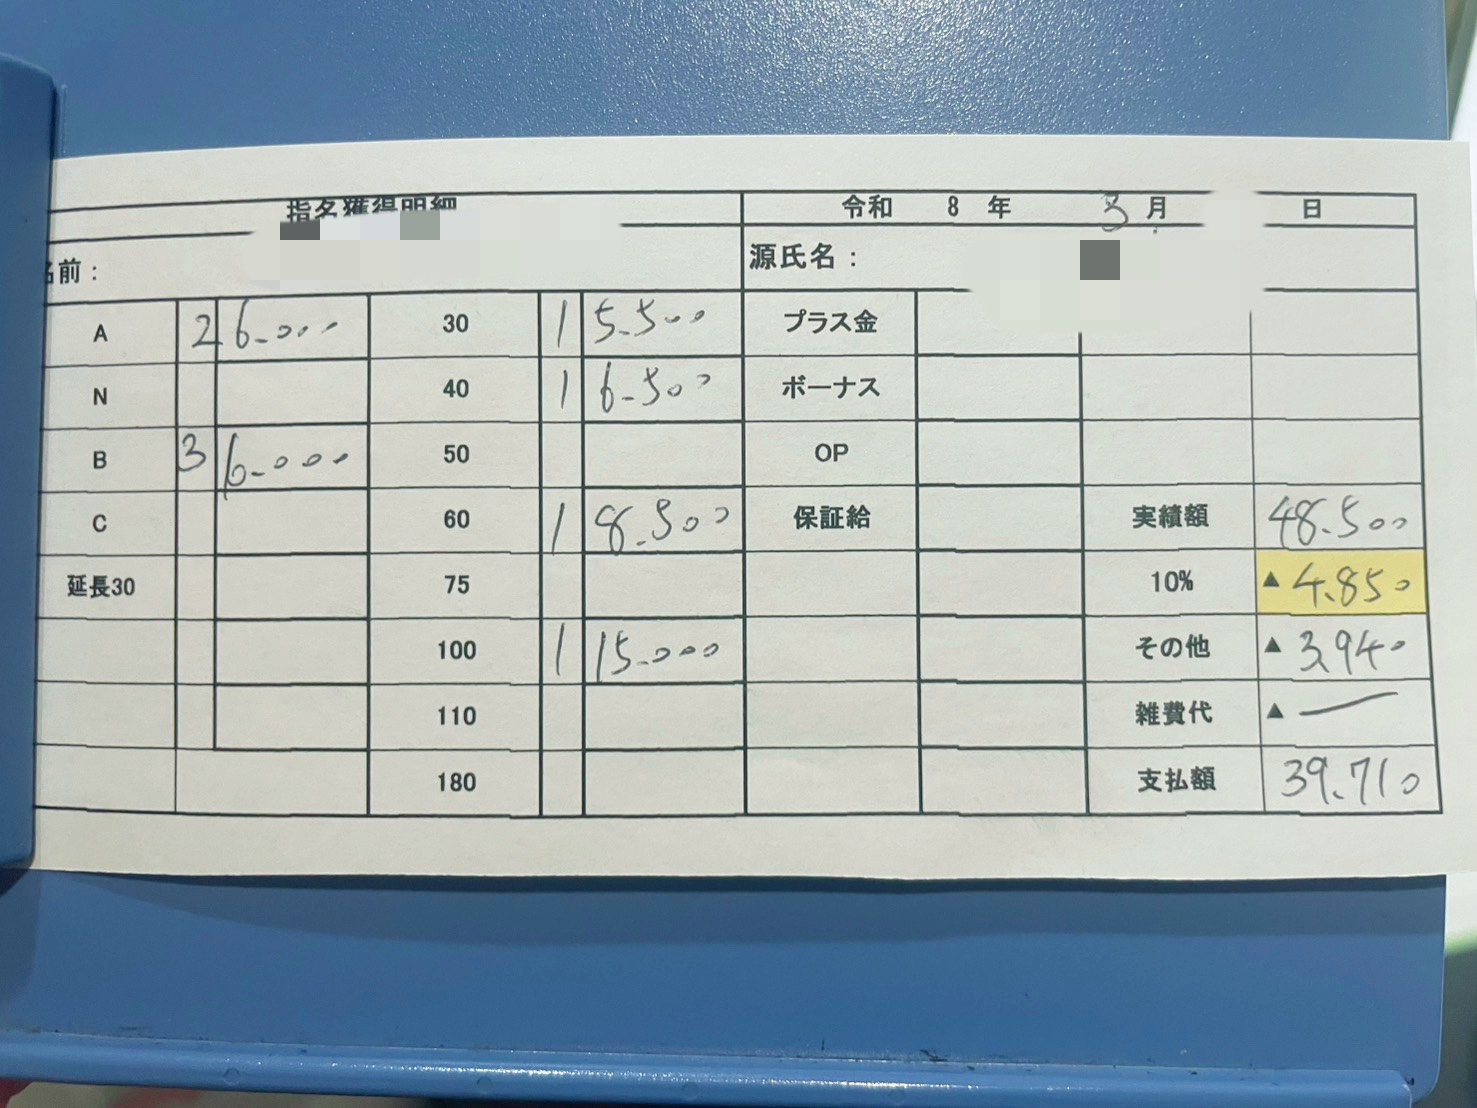 指名獲得明細 令和 8 年 3 月 日
名前： 源氏名：
A 2 6.000 30 1 5.500 プラス金
N 40 1 6.500 ボーナス
B 3 6.000 50 OP
C 60 1 8.500 保証給 実績額 48.500
延長30 75 10% ▲ 4.850
100 1 15.000 その他 ▲ 3.940
110 雑費代 ▲ —
180 支払額 39.710